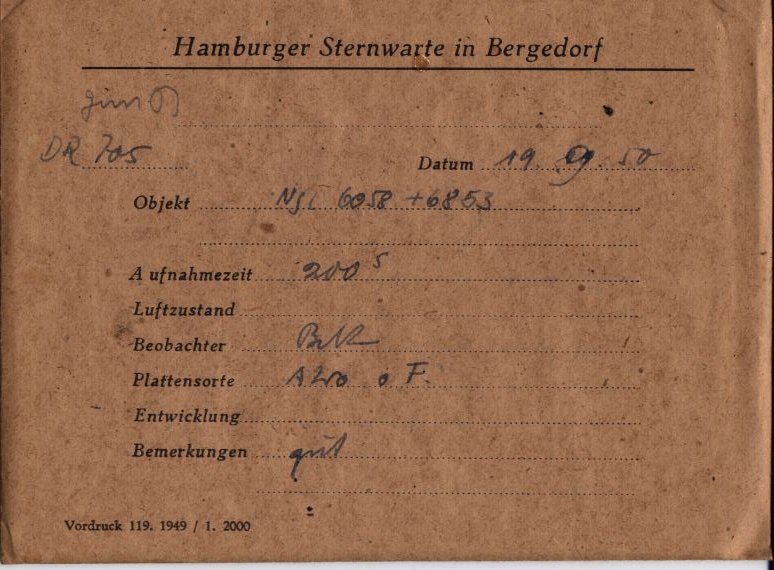 Hamburger Sternwarte in Bergedorf
DR 705
Datum 19. 9. 50
Objekt NGC 6058 + 6853
Aufnahmezeit 200 s
Luftzustand
Beobachter
Plattensorte o F.
Entwicklung
Bemerkungen gut
Vordruck 119. 1949 / 1. 2000